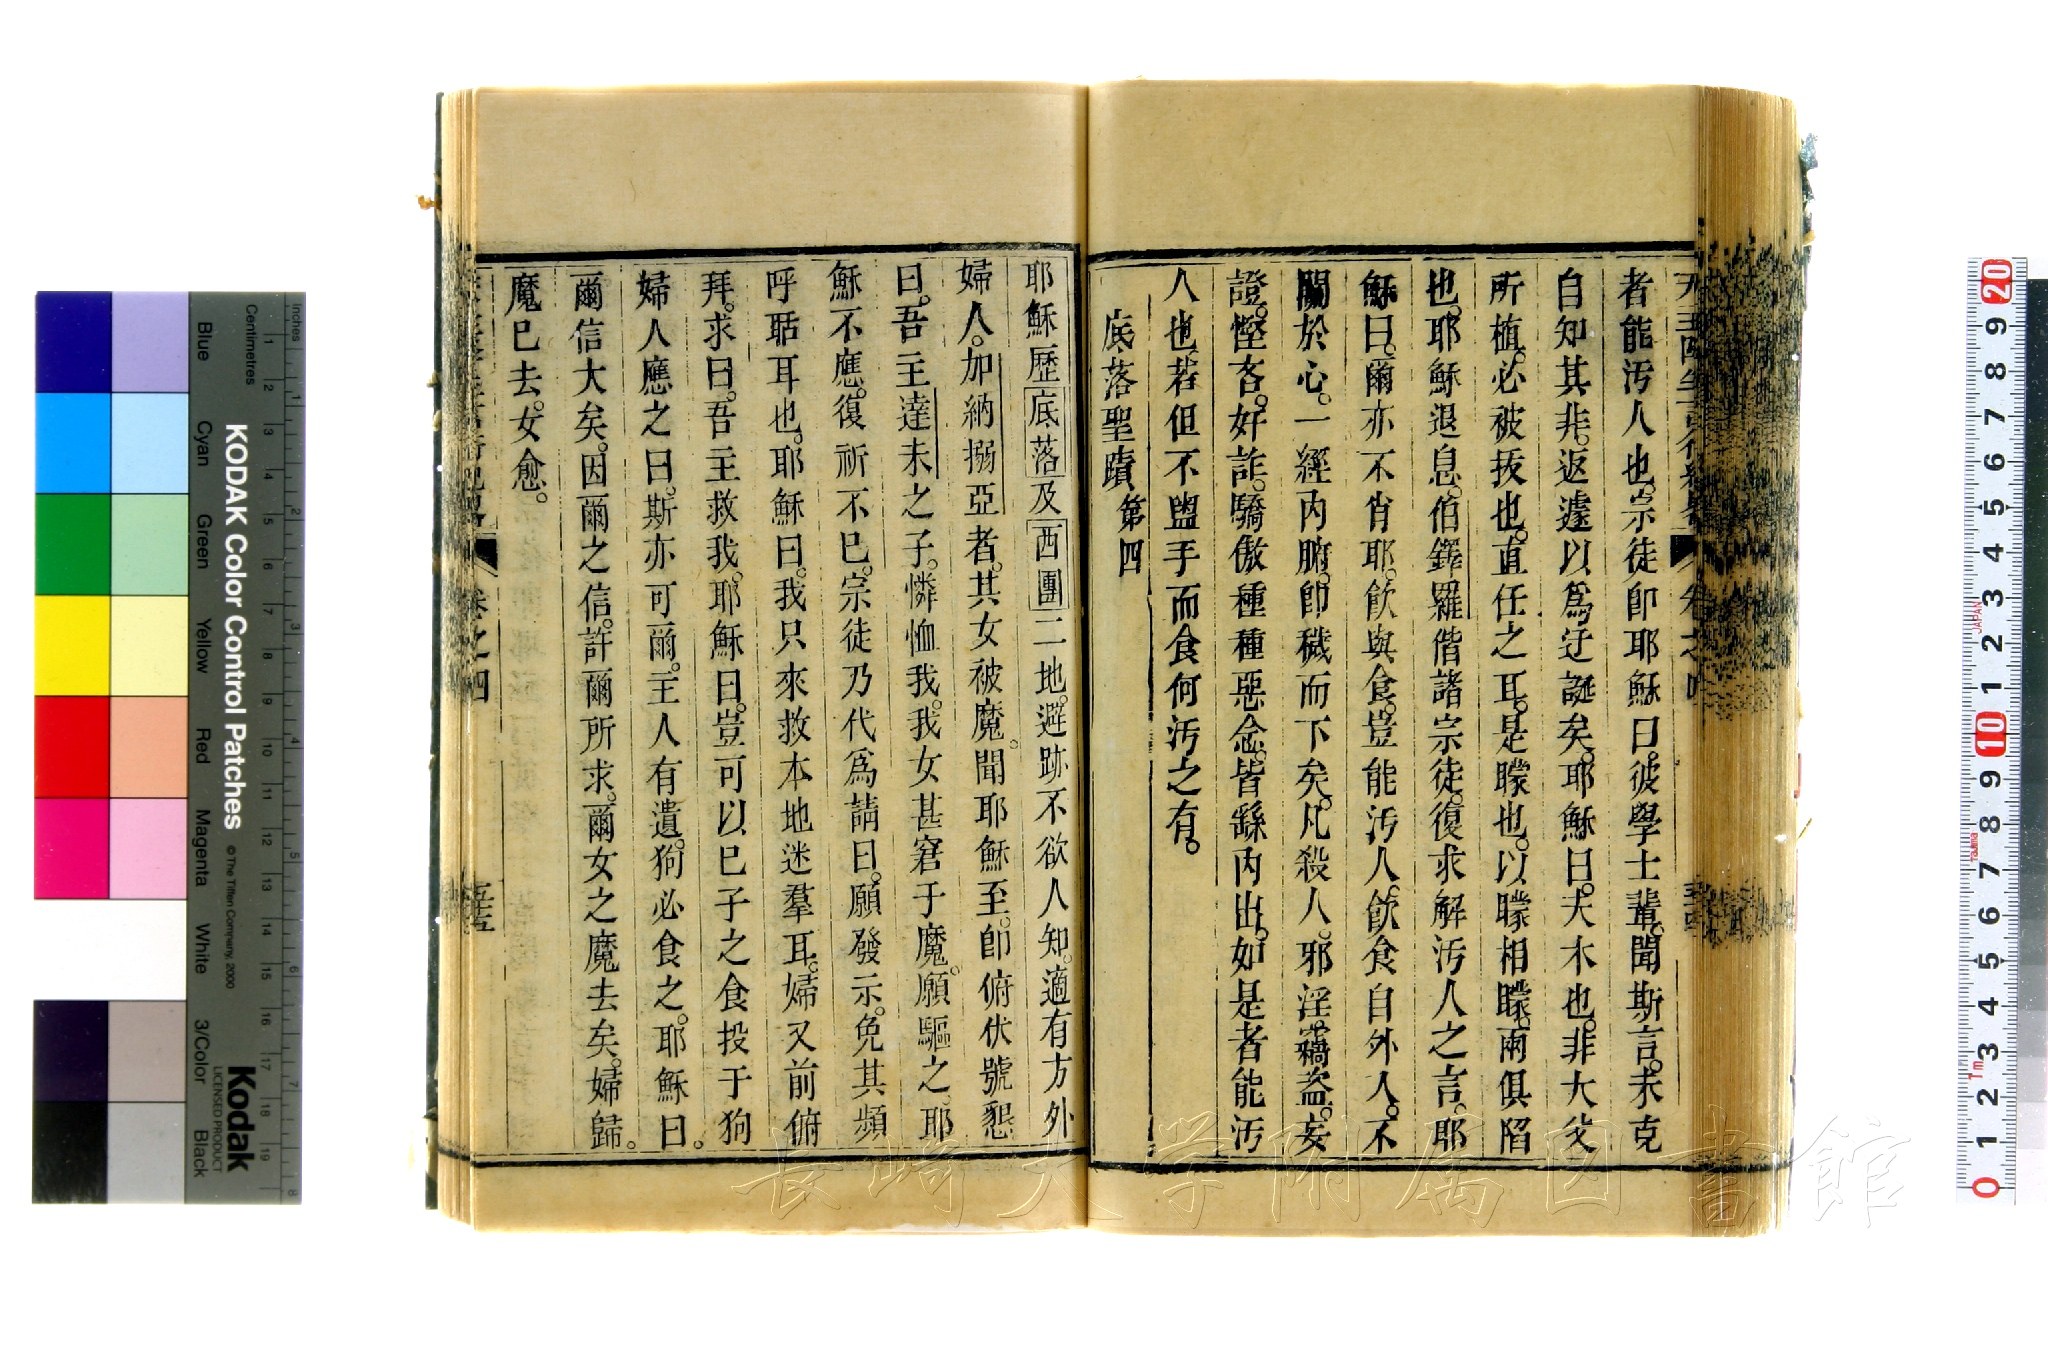 者能汚人也。宗徒卽耶穌曰。彼學士輩。聞斯言。未克
自知其非。返遽以爲迂誕矣。耶穌曰。夫木也。非大父
所植。必被拔也。直任之耳。是矇也。以矇相矇。兩俱陷
也。耶穌退息。伯鐸羅偕諸宗徒。復求解汚人之言。耶
穌曰。爾亦不肖耶。飮與食。豈能汚人。飮食自外入。不
關於心。一經內腑。卽穢而下矣。凡殺人。邪淫。竊盜。妄
證。慳吝。奸詐。驕傲種種惡念。皆繇內出。如是者能汚
人也。若但不盥手而食何汚之有。
底落聖蹟 第四
耶穌歷底落及西團二地。避跡不欲人知。適有方外
婦人。加納搦亞者。其女被魔。聞耶穌至。卽俯伏號懇
曰。吾主達未之子。憐恤我。我女甚窘于魔。願驅之。耶
穌不應。復祈不已。宗徒乃代爲請曰。願發示。免其頻
呼聒耳也。耶穌曰。我只來救本地迷羣耳。婦又前俯
拜。求曰。吾主救我。耶穌曰。豈可以己子之食投于狗
婦人應之曰。斯亦可爾。主人有遺。狗必食之。耶穌曰。
爾信大矣。因爾之信。許爾所求。爾女之魔去矣。婦歸。
魔已去。女愈。
卷之四
五十五
KODAK Color Control Patches
© The Tiffen Company, 2000
Kodak
LICENSED PRODUCT
Inches
Centimetres
Blue
Cyan
Green
Yellow
Red
Magenta
White
3/Color
Black
JAPAN
長崎大学附属図書館